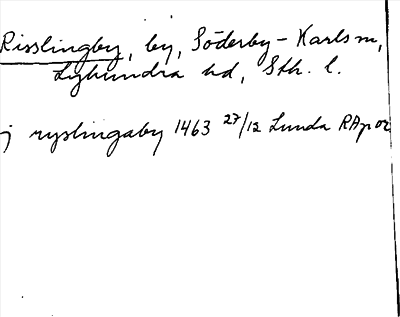 Risslingby, by, Söderby-Karls sn,
Lyhundra hd, Sth. l.
j ryslingaby 1463 27/12 Lunda RAp or